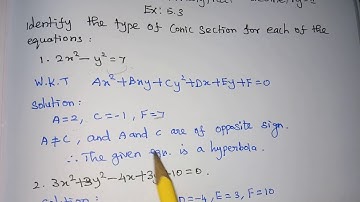 Ex: 5.3
Identify the type of Conic section for each of the
equations:
1. 2x² - y² = 7
W.K.T Ax² + Bxy + Cy² + Dx + Ey + F = 0
Solution:
A = 2, C = -1, F = 7
A ≠ C, and A and C are of opposite sign.
∴ The given eqn. is a hyperbola.
2. 3x² + 3y² - 4x + 3y + 10 = 0.
Solution: D = -4, E = 3, F = 10